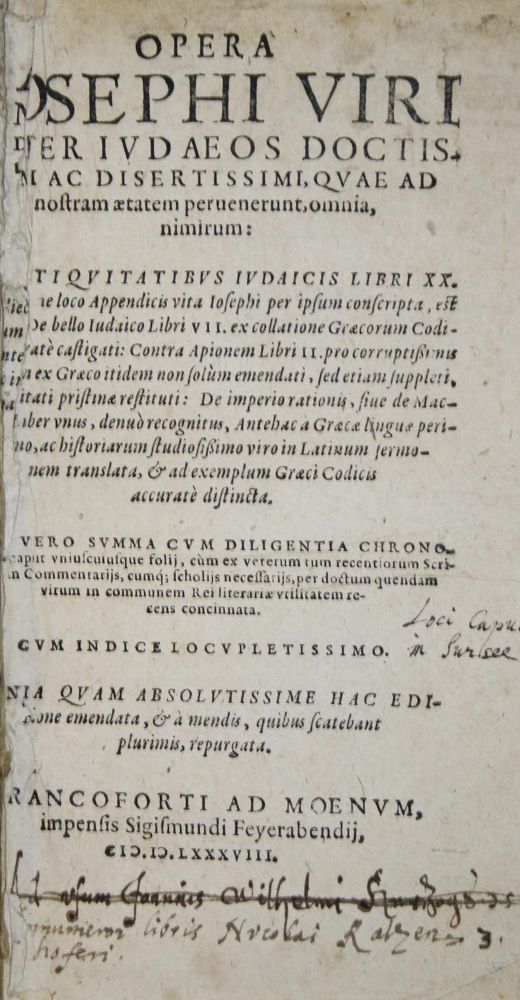 OPERA
OSEPHI VIRI
TER IVDAEOS DOCTIS-
M AC DISERTISSIMI, QVAE AD
noſtram ætatem peruenerunt, omnia,
nimirum:
TIQVITATIBVS IVDAICIS LIBRI XX.
loco Appendicis vita Ioſephi per ipſum conſcripta, eſt
De bello Iudaico Libri VII. ex collatione Græcorum Codi-
caſtigati: Contra Apionem Libri II. pro corruptißimis
ex Græco itidem non ſolùm emendati, ſed etiam ſuppleti,
itati priſtinæ reſtituti: De imperio rationis, ſiue de Mac-
Liber vnus, denuò recognitus, Antehac à Græcæ linguæ peri-
no, ac hiſtoriarum ſtudioſißimo viro in Latinum ſermo-
nem translata, & ad exemplum Græci Codicis
accuratè diſtincta.
VERO SVMMA CVM DILIGENTIA CHRONO-
caput vniuſcuiuſque folij, cùm ex veterum tum recentiorum Scri-
Commentarijs, cumq; ſcholijs neceſſarijs, per doctum quendam
virum in communem Rei literariæ vtilitatem re-
cens concinnata.
Loci Capu
in Surſee
CVM INDICE LOCVPLETISSIMO.
NIA QVAM ABSOLVTISSIME HAC EDI-
ione emendata, & à mendis, quibus ſcatebant
plurimis, repurgata.
RANCOFORTI AD MOENVM,
impenſis Sigiſmundi Feyerabendij,
CIↃ.IↃ.LXXXVIII.
Ad uſum Joannis Wilhelmi
libris Nicolai
hoferi.